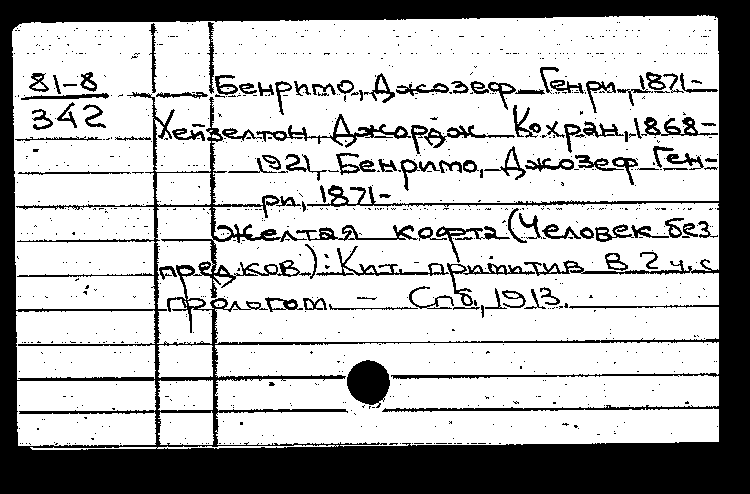 81-8
342
Бенримо, Джозеф Генри, 1871-
Хейзелтон, Джордж Кохран, 1868-
1921, Бенримо, Джозеф Ген-
ри, 1871-
Желтая кофта (Человек без
предков): Кит. примитив в 2 ч. с
прологом. – Спб., 1913.